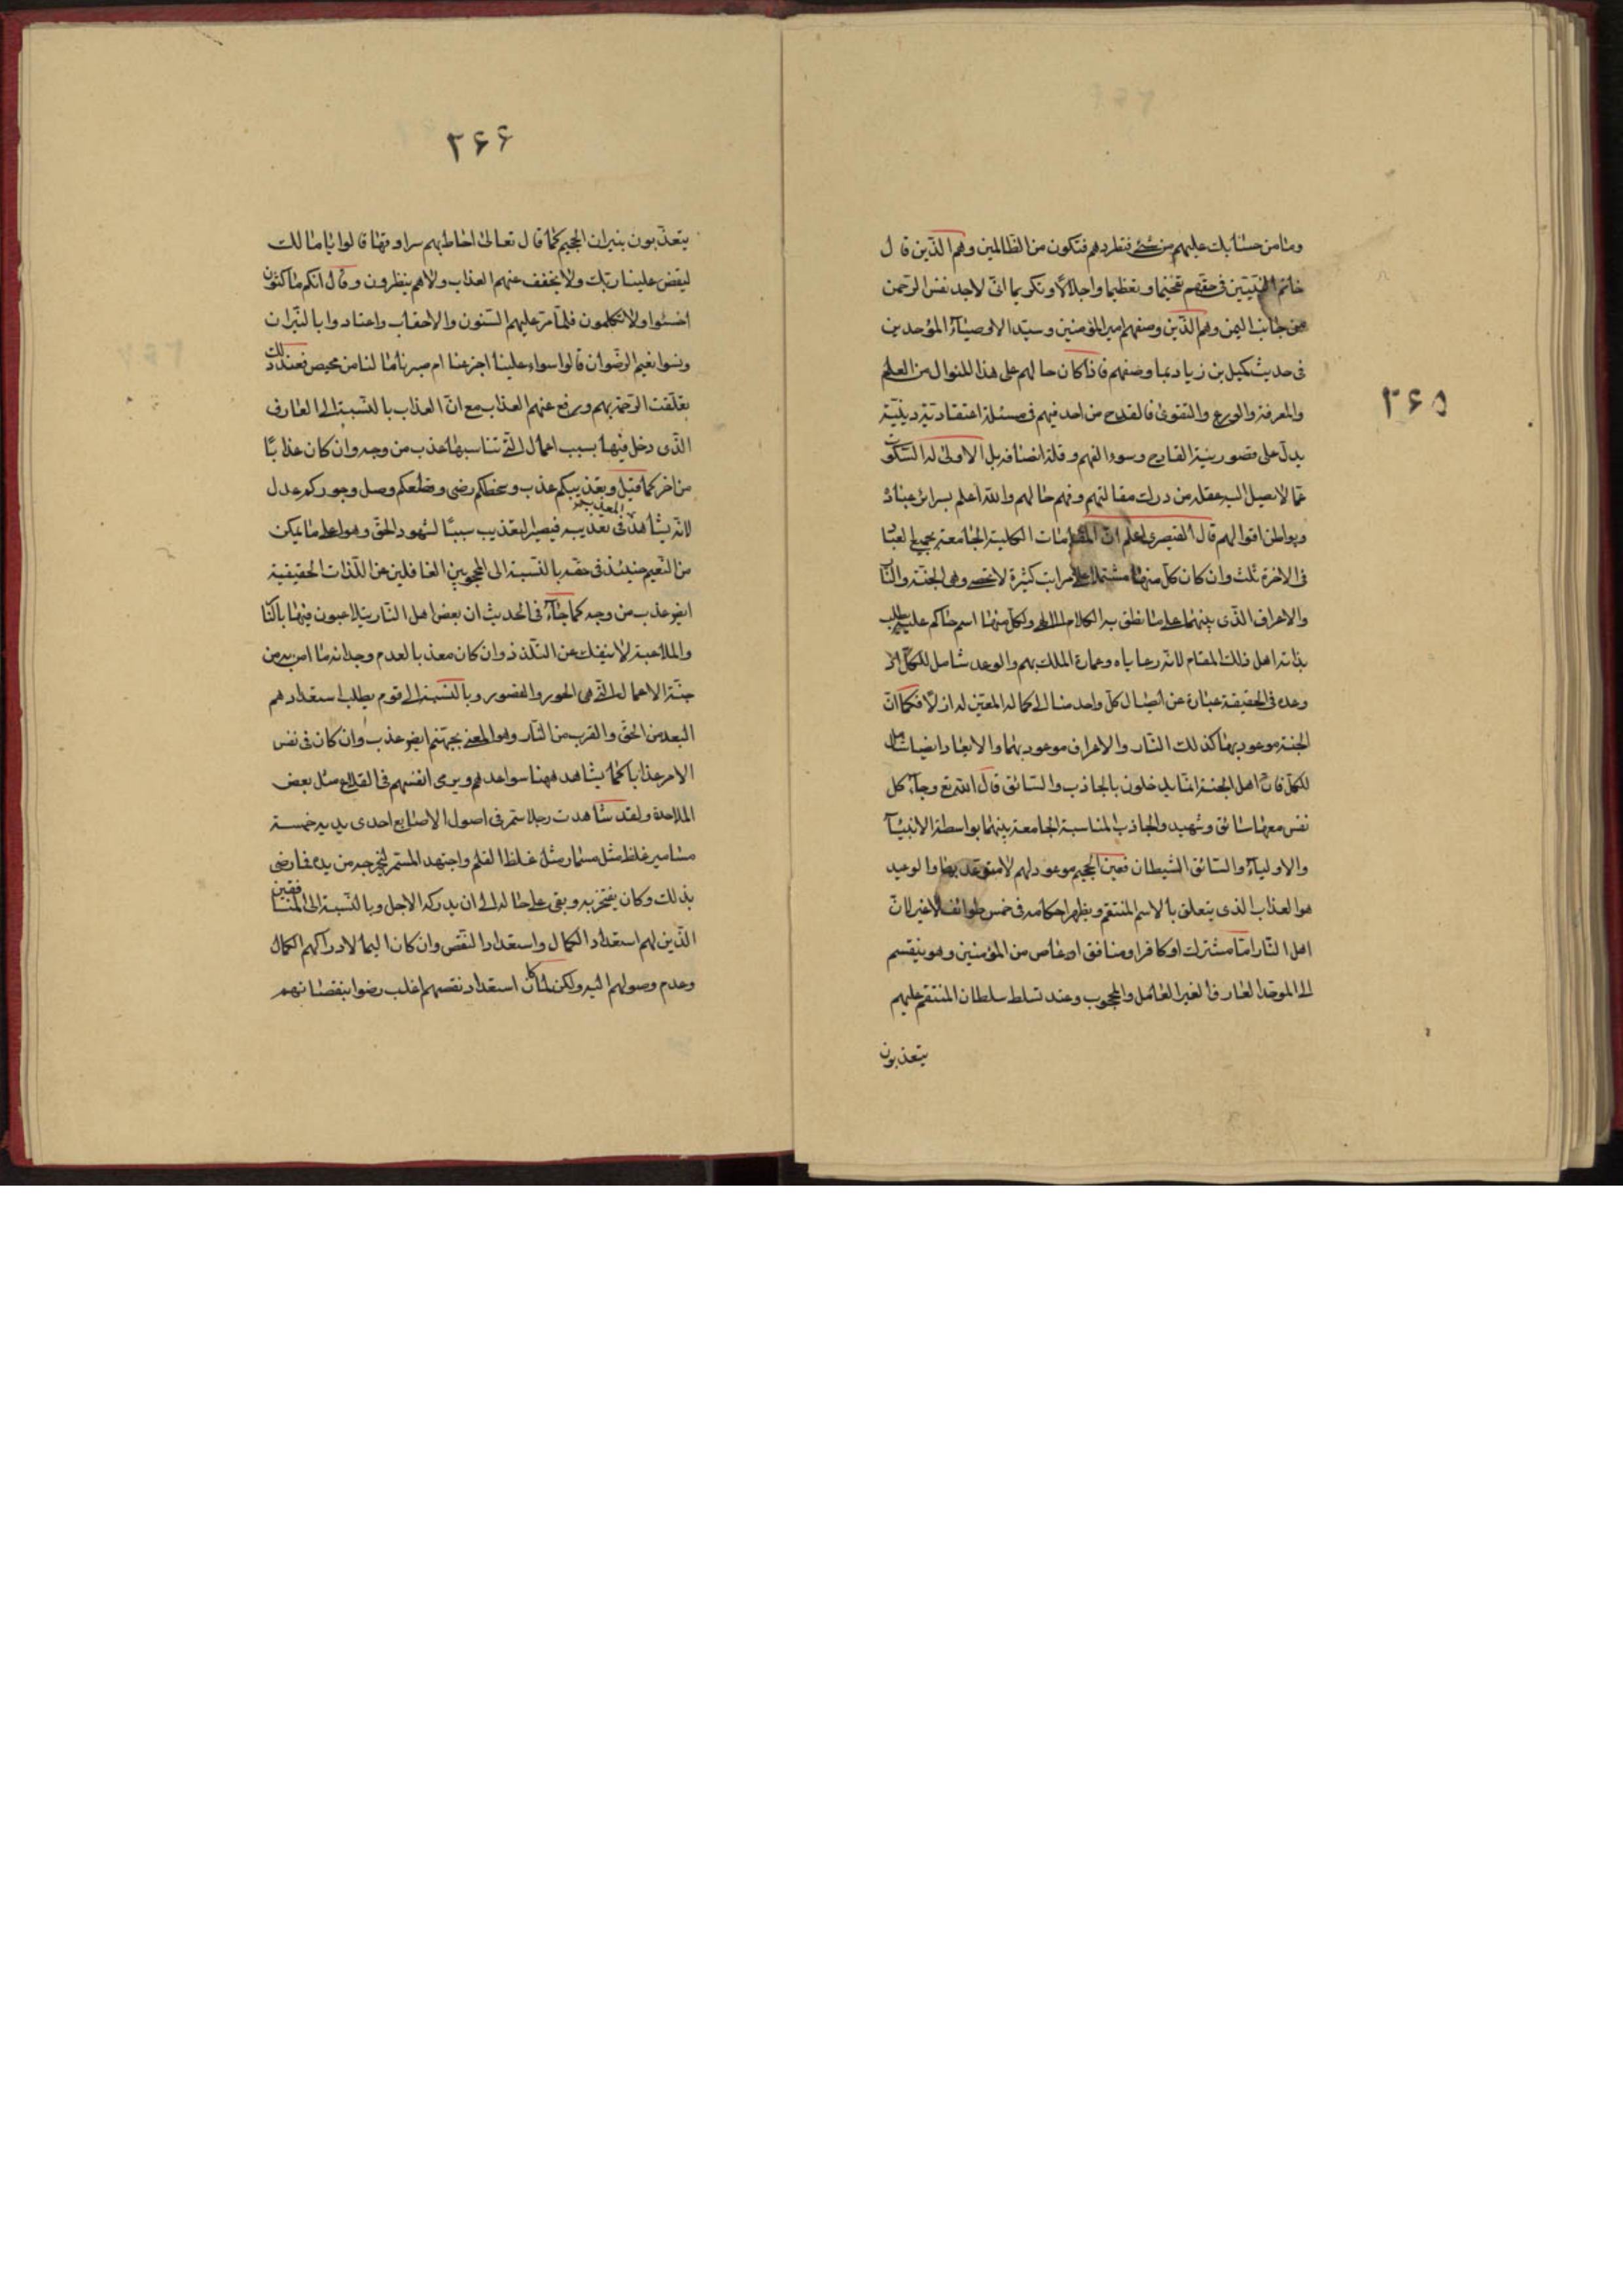 ۳۶۵
وما من حسابك عليهم من شئ فتطردهم فتكون من الظالمين وهم الذين قال
خاتم النبيين فى حقهم تفخيما وتعظيما واجلالا وتكريما انى لاجد نفس الرحمن
من جانب اليمن وهم الذين وصفهم امير المؤمنين وسيد الاوصياء الموحدين
فى حديث كميل بن زياد بما وصفهم فاذا كان حالهم على هذا المنوال من العلم
والمعرفة والورع والتقوى فالقدح من احد فيهم فى مسئلة اعتقادية دينية
يدل على قصور بنية القادح وسوء الفهم وقلة انصافه بل الاولى له السكوت
عما لا يصل اليه عقله من درك مقالتهم وفهم حالهم والله اعلم بسرائر عباده
وبواطن اقوالهم قال القيصرى اعلم ان المقامات الكلية الجامعة بجميع العباد
فى الاخرة ثلث وان كان كل منها مشتملا على مراتب كثيرة لا تحصى وهى الجنة والنار
والاعراف الذى بينهما على ما نطق به الكلام الالهى ولكل منها اسم حاكم عليه يطلب
بذاته اهل ذلك المقام لانه رعاياه وعمارة الملك بهم والوعد شامل للكل اذ
وعده فى الحقيقة عبارة عن ايصال كل واحد منا الى كماله المعين له ازلا فكما ان
الجنة موعود بها كذلك النار والاعراف موعود بهما والايعاد ايضا شامل
للكل فان اهل الجنة انما يدخلون بالجاذب والسائق قال الله تع وجاءت كل
نفس معها سائق وشهيد والجاذب المناسبة الجامعة بينهما بواسطة الانبياء
والاولياء والسائق الشيطان فعين الجحيم موعود لهم لا متوعد بها والوعيد
هو العذاب الذى يتعلق بالاسم المنتقم ويظهر احكامه فى خمس طوائف لا غير لان
اهل النار اما مشترك او كافر او منافق او عاص من المؤمنين وهو ينقسم
الى الموحد العارف الغير العامل والمحجوب وعند تسلط سلطان المنتقم عليهم
يتعذبون
۳۶۶
يتعذبون بنيران الجحيم كما قال تعالى احاط بهم سرادقها قالوا يا مالك
ليقض علينا ربك ولا يخفف عنهم العذاب ولا هم ينظرون وقال انكم ماكثون
اخسئوا ولا تكلمون فلما مر عليهم السنون والاحقاب واعتادوا بالنيران
ونسوا نعيم الرضوان قالوا سواء علينا اجزعنا ام صبرنا ما لنا من محيص فعند ذلك
تعلقت الرحمة بهم ورفع عنهم العذاب مع ان العذاب بالنسبة الى العارف
الذى دخل فيها بسبب اعمال التى تناسبها عذب من وجه وان كان عذابا
من اخر كما قيل وتعذيبكم عذب وسخطكم رضى وقطعكم وصل وجوركم عدل
لانه يشاهد المعذب فى تعذيبه فيصير التعذيب سببا لشهود الحق وهو اعلى ما يمكن
من النعيم حينئذ فى حقه بالنسبة الى المحجوبين الغافلين عن اللذات الحقيقية
ايضو عذب من وجه كما جاء فى الحديث ان بعض اهل النار يتلاعبون فيها بالنار
والملاعبة لا ينفك عن التلذذ وان كان معذبا لعدم وجدانه ما امن به من
جنة الاعمال التى هى الحور والقصور وبالنسبة الى قوم يطلب استعدادهم
البعد من الحق والقرب من النار وهو المعنى بجهنم ايضو عذب وان كان فى نفس
الامر عذابا كما يشاهد ههنا سواعدهم ويرمى انفسهم فى القلاع مثل بعض
الملاحدة ولقد شاهدت رجلا ستمر فى اصول الاصابع احدى يديه خمسة
مسامير غلظ مثل مسمار مثل غلظ القلم واجتهد المستمر ليخرجه من يده فما رضى
بذلك وكان يفتخر به وبقى على حاله الى ان يدركه الاجل وبالنسبة الى المنافقين
الذين لهم استعداد الكمال واستعداد النقص وان كان اليما لادراكهم الكمال
وعدم وصولهم اليه ولكن لما كان استعداد نقصهم اغلب رضوا بنقصانهم